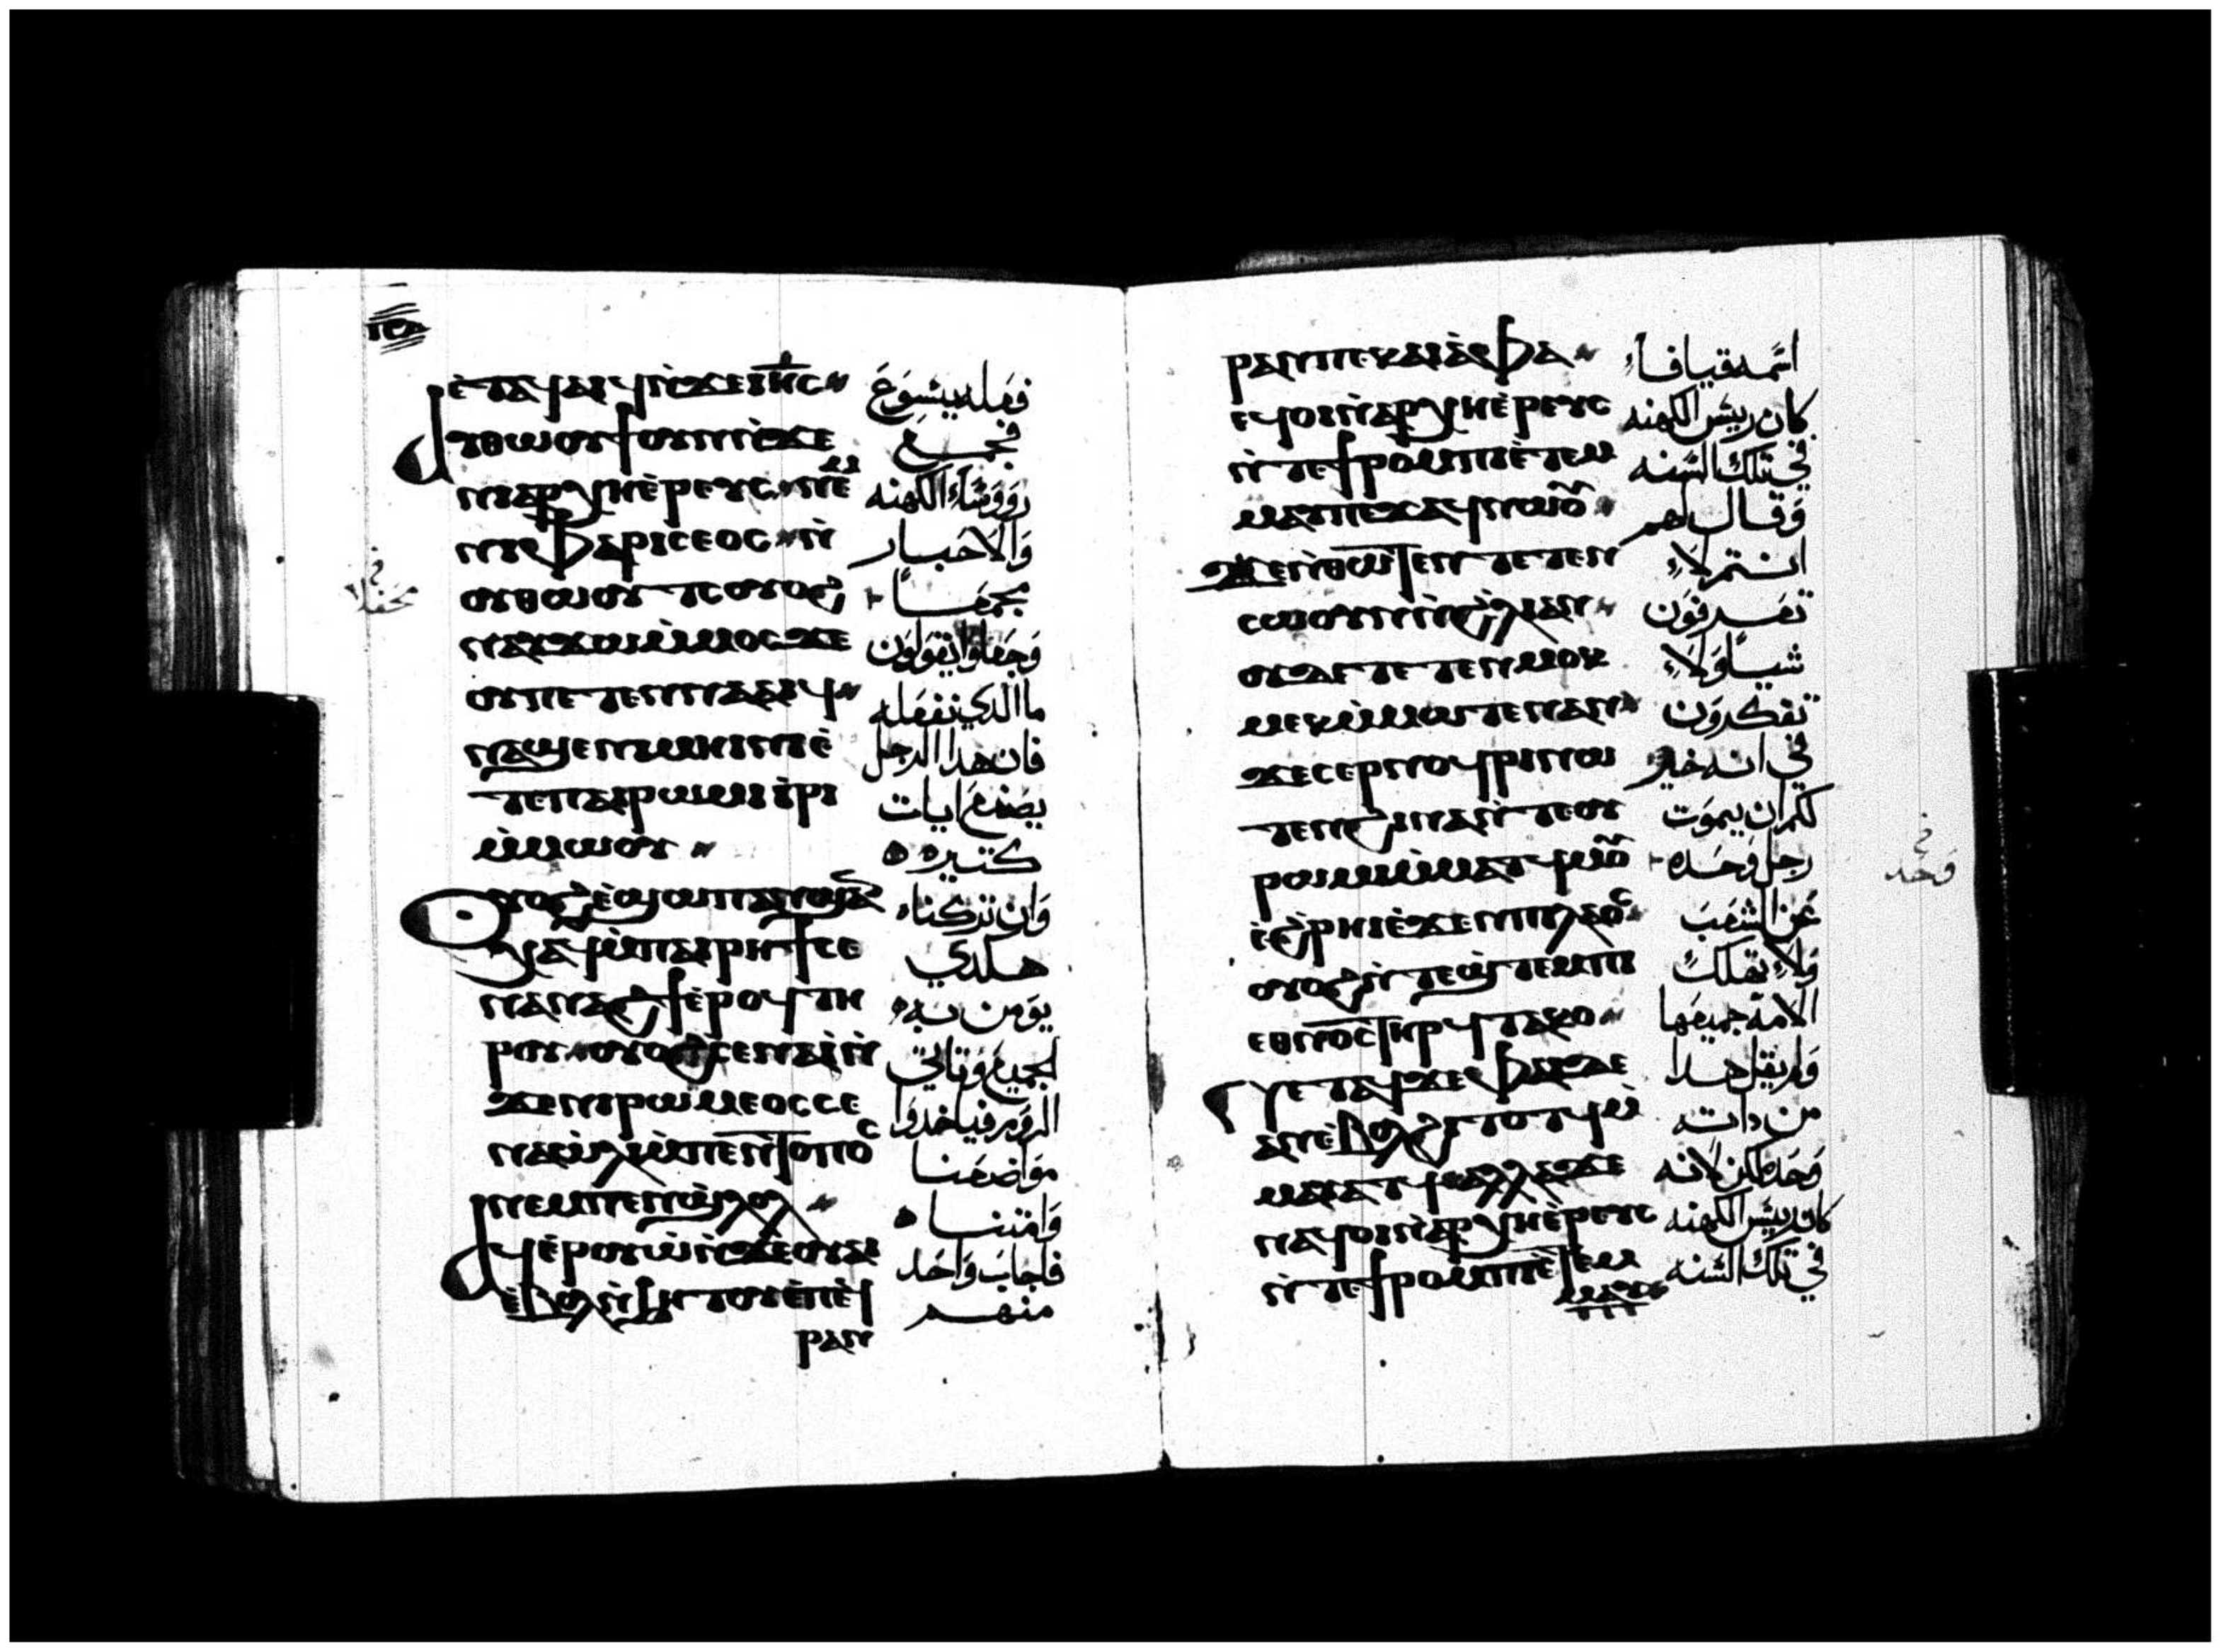 ⲓⲉ
ⲉ̀ⲧⲁϥⲁⲓϥⲛ̀ϫⲉⲓⲏ̅ⲥ
ⲁⲩⲑⲱⲟⲩϯⲟⲩⲛⲛ̀ϫⲉ
ⲛⲓⲁⲣⲭⲏⲉ̀ⲣⲉⲩⲥ ⲛⲉⲙ
ⲛⲓⲫⲁⲣⲓⲥⲉⲟⲥ ⲛ̀
ⲟⲩⲑⲱⲟⲩⲧⲥ ⲟⲩⲟϩ
ⲛⲁⲩϫⲱⲙ̀ⲙⲟⲥϫⲉ
ⲟⲩⲡⲉⲧⲉⲛⲛⲁⲁⲓϥ
ⲛⲁϣⲉⲛⲓⲙⲏⲓⲛⲓⲉ̀
ⲧⲉⲡⲁⲓⲣⲱⲙⲓⲓ̀ⲣⲓ
ⲙ̀ⲙⲱⲟⲩ
ⲟⲩⲟϩⲉ̀ϣⲱⲡⲁⲛϣⲁⲛ
ⲭⲁϥⲙ̀ⲡⲁⲓⲣⲏϯⲥⲉ
ⲛⲁⲛⲁϩϯⲉ̀ⲣⲟϥⲧⲏ
ⲣⲟⲩ ⲟⲩⲟϩⲥⲉⲛⲁⲓ̀ⲛ̀
ϫⲉⲛⲓⲣⲱⲙⲉⲟⲥⲥⲉ
ⲛⲁⲱ̀ⲗⲓⲙ̀ⲡⲉⲛⲧⲟⲡⲟⲥ
ⲛⲉⲙⲡⲉⲛϣⲗⲟⲗ
ⲁϥⲉ̀ⲣⲟⲩⲱ̀ⲛ̀ϫⲉⲟⲩⲁⲓ
ⲉ̀ⲃⲟⲗⲛ̀ϧⲏⲧⲟⲩⲉ̀ⲡⲉϥ
ⲣⲁⲛ
فعله يسوع
فجمع
رووساء الكهنه
والاحبار
مجمعاً
وجعلوا يقولون
ما الدي نفعله
فان هدا الرجل
يصنع ايات
كتيره
وان تركناه
هكدي
يومن به
الجميع وتاتي
الروم فياخدوا
مواضعنا
وامتنا
فاجاب واحد
منهم
محفلا
ⲣⲁⲛⲡⲉⲕⲁⲓⲁ̀ⲫⲁ
ⲉϥⲟⲓⲛ̀ⲁⲣⲭⲏⲉ̀ⲣⲉⲩⲥ
ⲛ̀ⲧⲉϯⲣⲟⲙⲡⲓⲉ̀ⲧⲉⲙ
ⲙⲁⲩⲡⲉϫⲁϥⲛⲱⲟⲩ
ϫⲉⲛ̀ⲑⲱⲧⲉⲛⲧⲉⲧⲉⲛ
ⲥⲱⲟⲩⲛⲛ̀ϩⲗⲓⲁⲛ
ⲟⲩⲇⲉⲧⲉⲧⲉⲛⲙⲟⲕ
ⲙⲉⲕⲙ̀ⲙⲱⲧⲉⲛⲁⲛ
ϫⲉⲥⲉⲣⲛⲟϥⲣⲓⲛⲱ
ⲧⲉⲛϩⲓⲛⲁⲛ̀ⲧⲉⲟⲩ
ⲣⲱⲙⲓⲙ̀ⲙⲁⲩϥⲙⲟⲩ
ⲉ̀ϩ̀ⲣⲏⲓⲉ̀ϫⲉⲛⲡⲓⲗⲁⲟⲥ
ⲟⲩⲟϩⲛ̀ⲧⲉϣⲧⲉⲙⲡⲓ
ⲉⲑⲛⲟⲥⲧⲏⲣϥⲧⲁⲕⲟ
ϥⲉⲧⲁϥϫⲉⲫⲁⲓⲇⲉ
ⲁⲛⲉ̀ⲃⲟⲗϩⲓⲧⲟⲧϥⲙ̀
ⲙⲁⲩⲁⲧϥⲁⲗⲗⲁϫⲉ
ⲛⲁϥⲟⲓⲛ̀ⲁⲣⲭⲏⲉ̀ⲣⲉⲩⲥ
ⲛ̀ⲧⲉϯⲣⲟⲙⲡⲓⲉ̀ⲧⲉⲙ
ⲙⲁⲩ
اسمه قيافاء
كان رييس الكهنه
في تلك السنه
وقال لهم
انتم لاء
تعرفون
شياً ولاء
تفكرون
في انه خير
لكم ان يموت
رجل وحده
عن الشعب
ولاء تهلك
الامه جميعها
ولم يقل هدا
من داته
وحده لكن لانه
كان رييس الكهنه
في تلك السنه